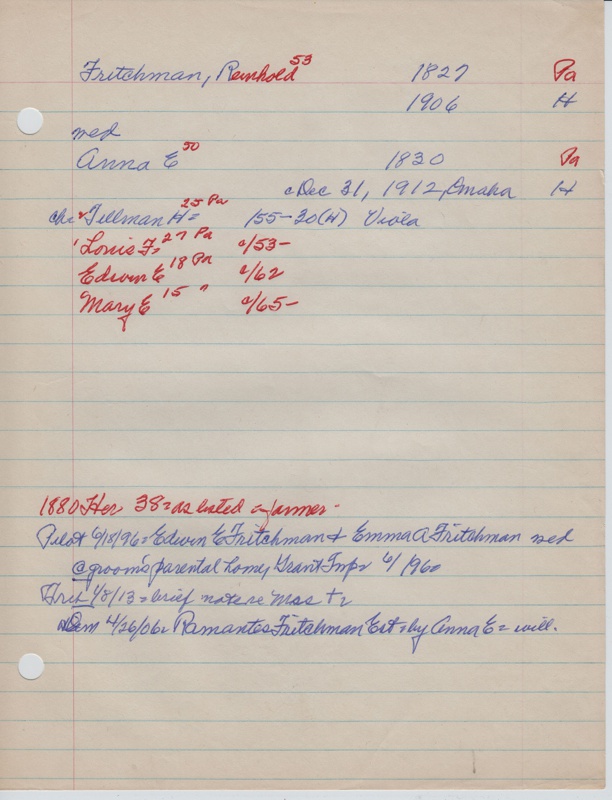 Fritchman, Reinhold 53 1827 Pa
1906 H
wed
Anna E 50 1830 Pa
c Dec 31, 1912, Omaha H
chi Tillman H= 25 Pa 155-30(H) Viola
Louis F, 27 Pa c/53-
Edwin E 18 Pa c/62
Mary E 15 " c/65-
1880 Her 38= as listed = farmer-
Pilot 6/18/96= Edwin E Fritchman & Emma A Fritchman wed
@ groom's parental home, Grant Twp=
1/8/13= brief note re Mrs
Dem 4/26/06= Fritchman Est= by Anna E= will.